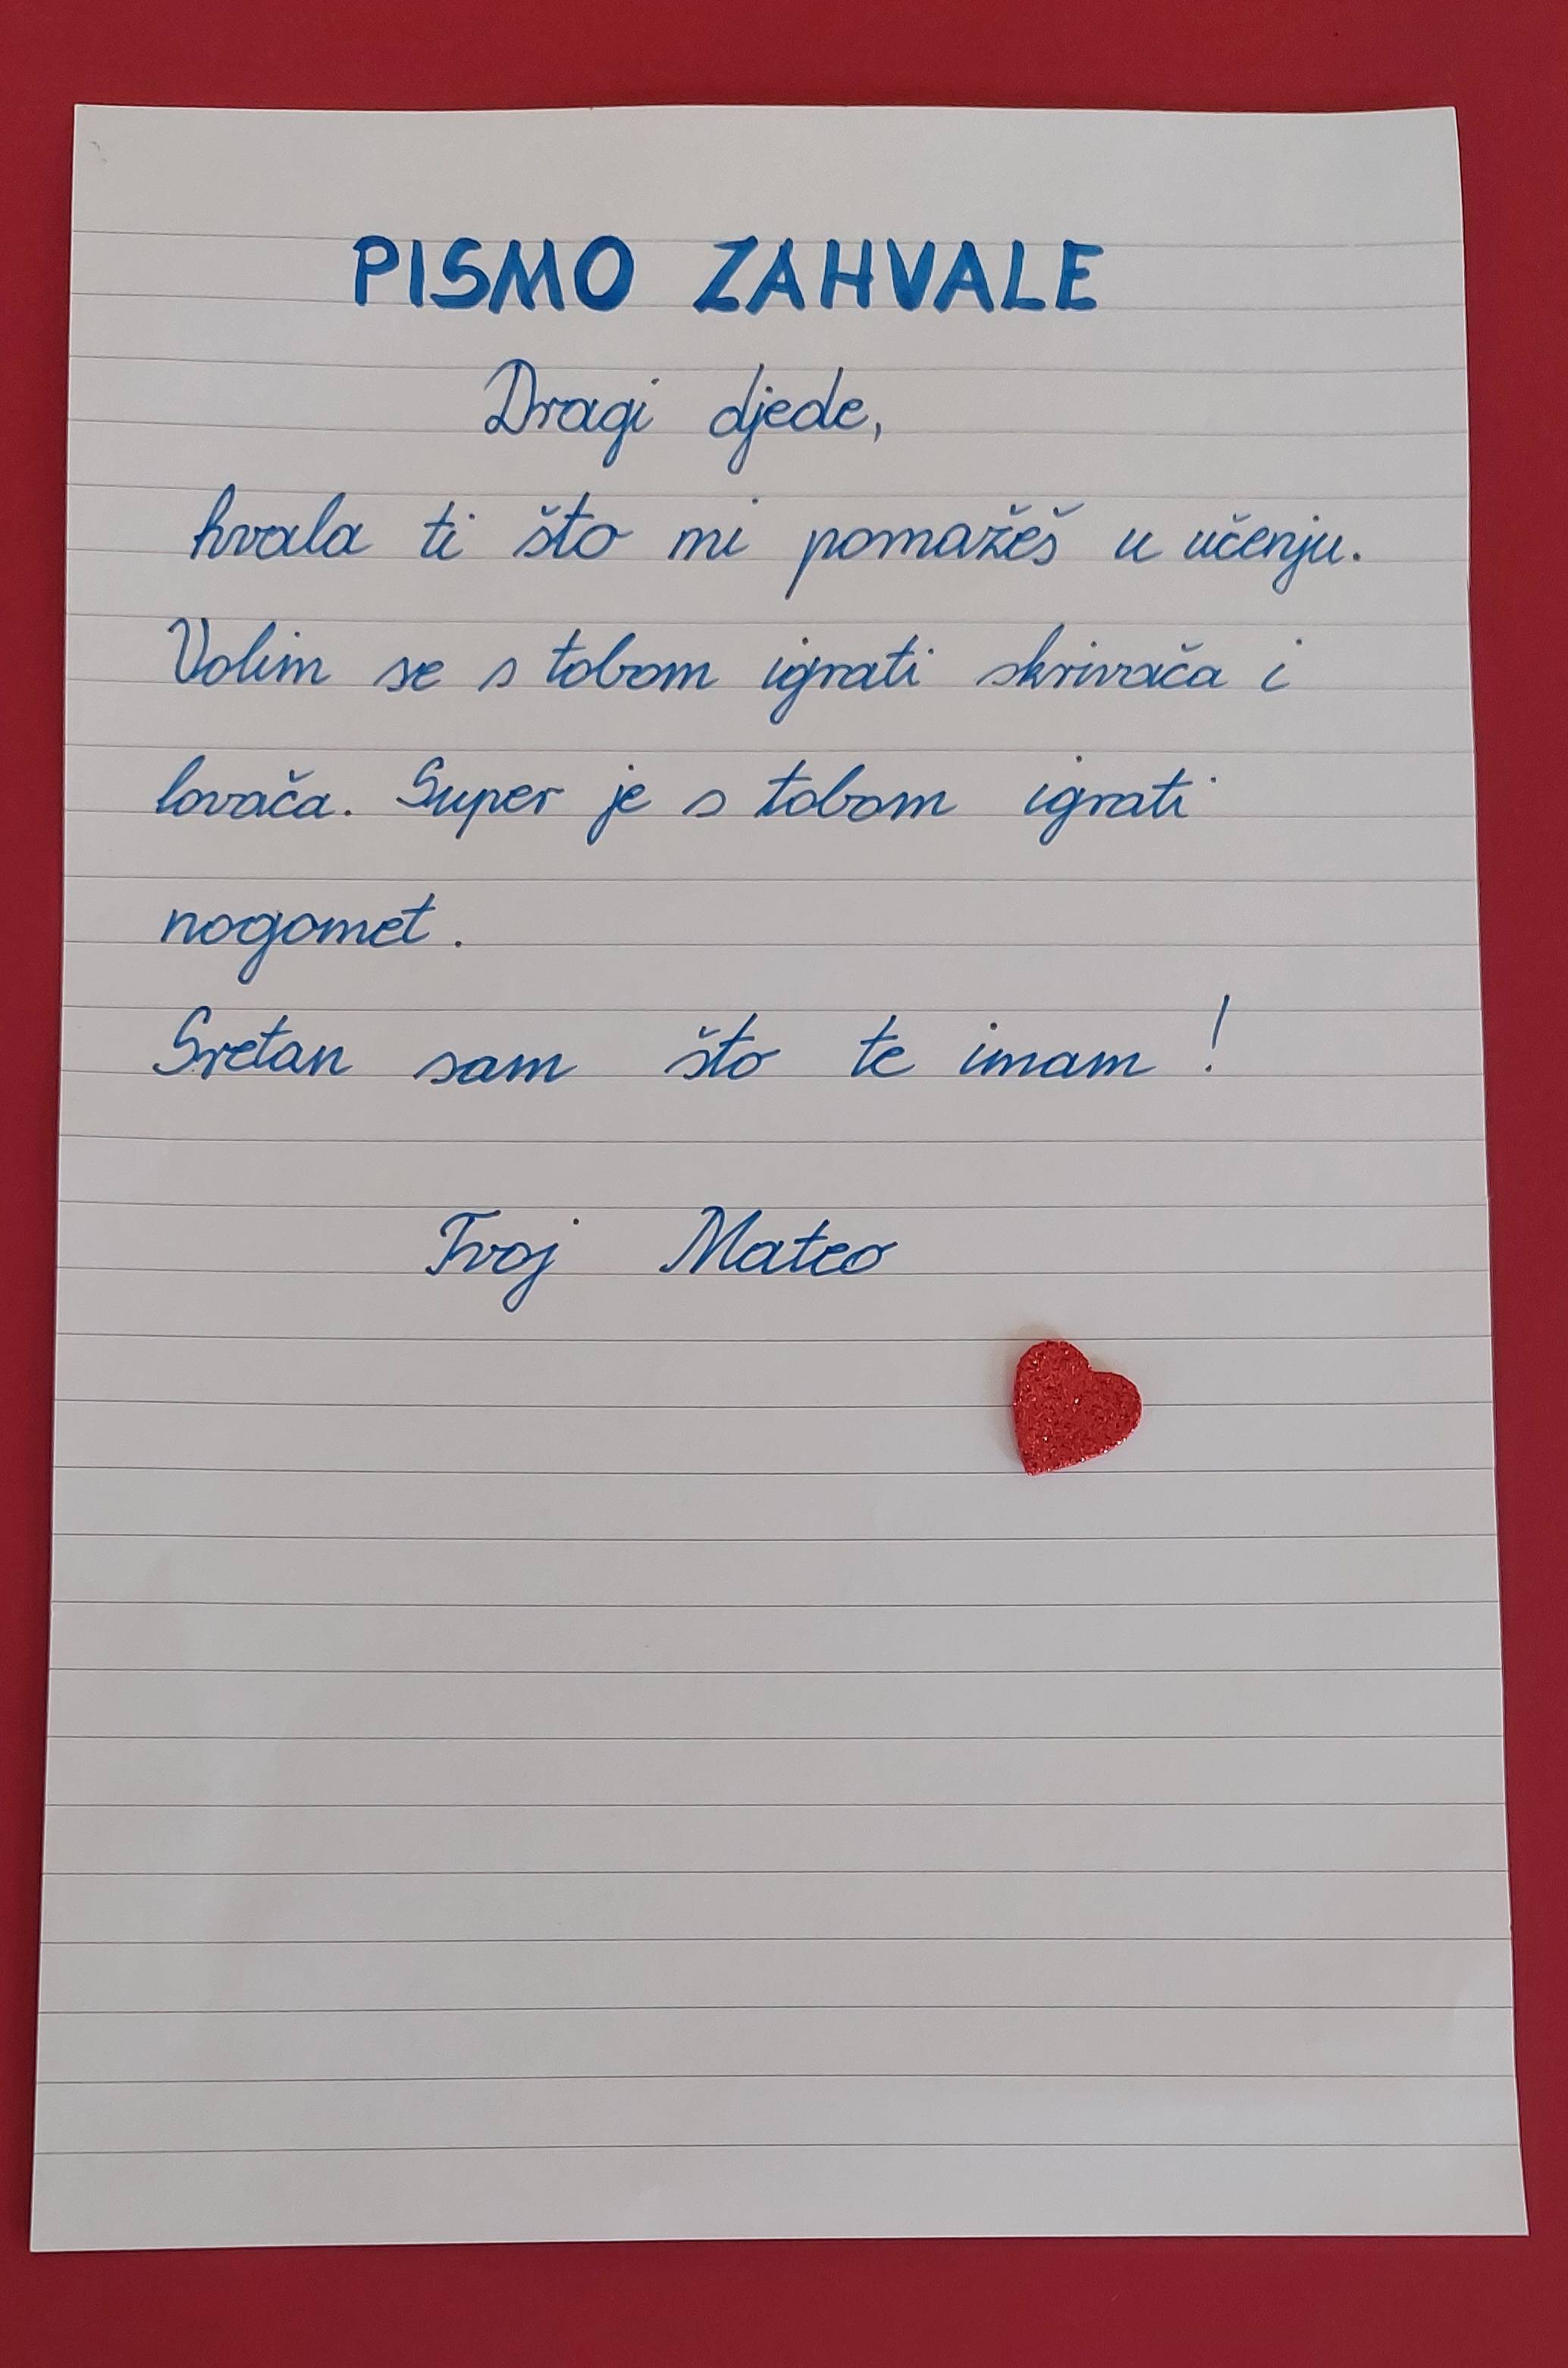 PISMO ZAHVALE
Dragi djede,
hvala ti što mi pomažeš u učenju.
Volim se s tobom igrati skrivača i
lovača. Super je s tobom igrati
nogomet.
Sretan sam što te imam!
Tvoj Mateo